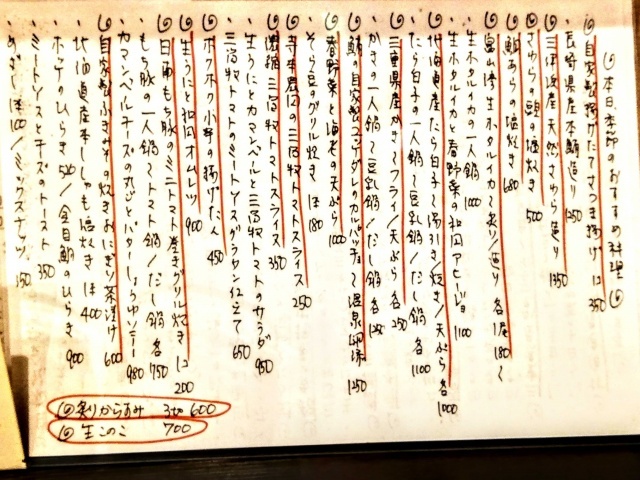 ◎本日季節のおすすめ料理◎
◎自家製揚げたてさつま揚げ 12 350
・長崎県産本鮪造り 1250
◎三河湾産天然さわら造り 1350
◎さわらの塩焼き 500
◎鯛あらの塩焼き 680
◎富山湾生ホタルイカ 造り 各 180
・生ホタルイカの一人鍋 1000
・生ホタルイカと春野菜の和風アヒージョ 1100
◎北海道産たら白子 湯引き/焼き/天ぷら 各 1000
・たら白子の一人鍋 豆乳鍋/だし鍋 各 1100
◎三重県産かき フライ/天ぷら 各 250
・かきの一人鍋 豆乳鍋/だし鍋 各 1250
◎鯛の自家製 カルパッチョ 温泉卵添 1250
◎春野菜と海老の天ぷら 1000
・そら豆のグリル焼き 180
◎ 農園の三百 トマトスライス 250
◎濃縮三百 トマトスライス 350
・生うにとカマンベールと三百 トマトのサラダ 950
・三百 トマトのミートソースグラタン仕立て 650
◎ホクホク小芋の揚げたん 450
◎生うにと和風オムレツ 900
◎白 もち豚のミニトマト巻きグリル焼き 12 200
・もち豚の一人鍋 トマト鍋/だし鍋 各 750
・カマンベールチーズの丸ごとバターしょうゆソテー 980
◎自家製ふきみその焼きおにぎり茶漬け 600
・北海道産本ししゃも塩焼き 400
・ホッケのひらき /金目鯛のひらき 900
・ミートソースとチーズのトースト 350
・めざし 100/ミックスナッツ 150
◎炙りからすみ 600
◎生このこ 700